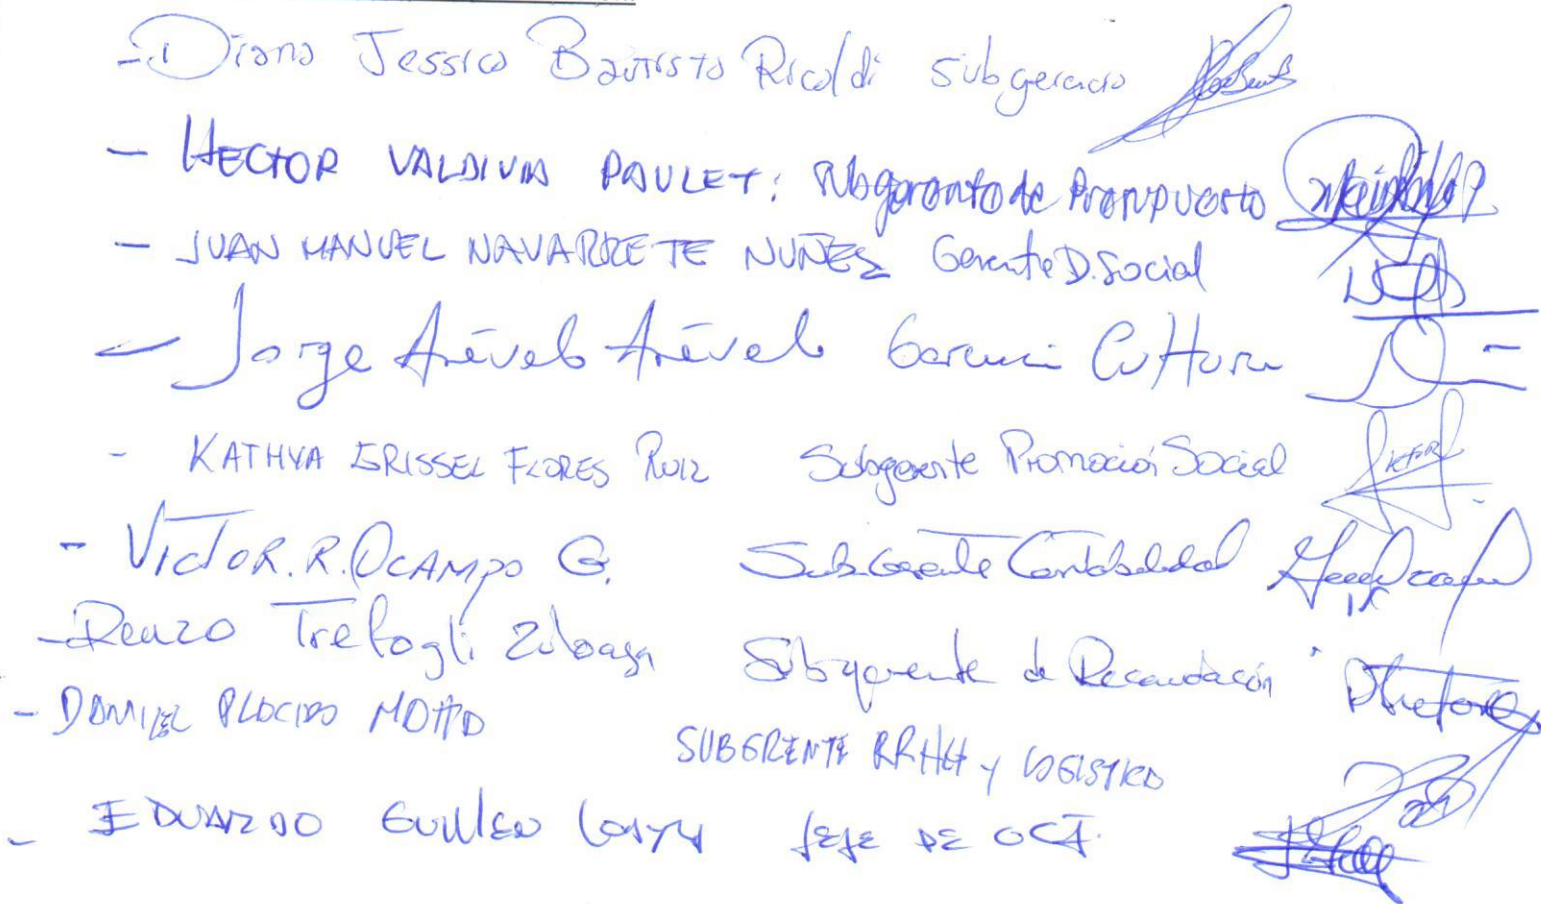 - Diana Jessica Bautista Ricaldi subgerencia
- HECTOR VALDIVIA PAULET: Subgerente de Presupuesto
- JUAN MANUEL NAVARRETE NUÑEZ Gerente D. Social
- Jorge Arévalo Arévalo Gerencia Cultura
- KATHYA GRISSEL FLORES RUIZ Subgerente Promoción Social
- VICTOR. R. OCAMPO G. SubGerente Contabilidad
- Renzo Trefogli Zuloaga Subgerente de Recaudación
- DANIEL PLACIDO
SUBGRENTE RRHH y LOGISTICA
- EDUARDO GUILLEN JEFE DE OCI.